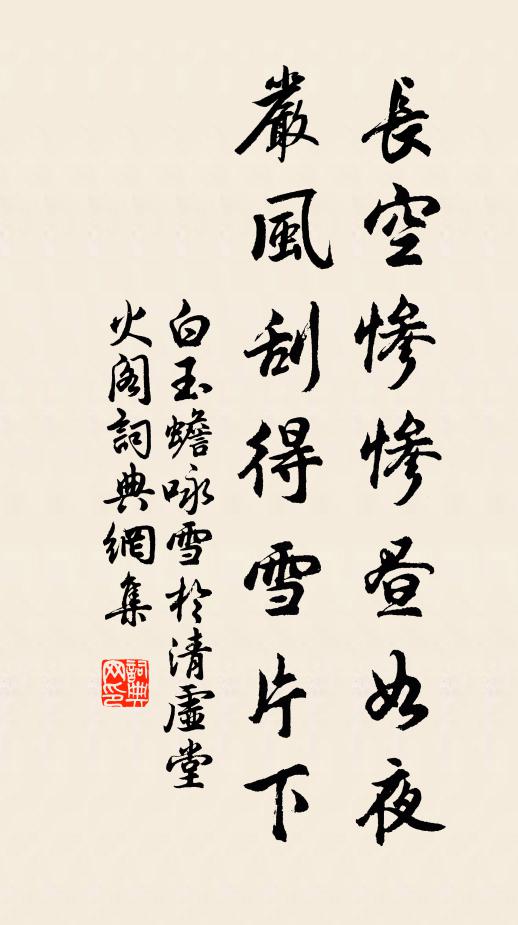 長空慘慘昼如夜
嚴風刮得雪片下
白玉蟾咏雪於清虛堂
火阁詞典網集
詞典网印